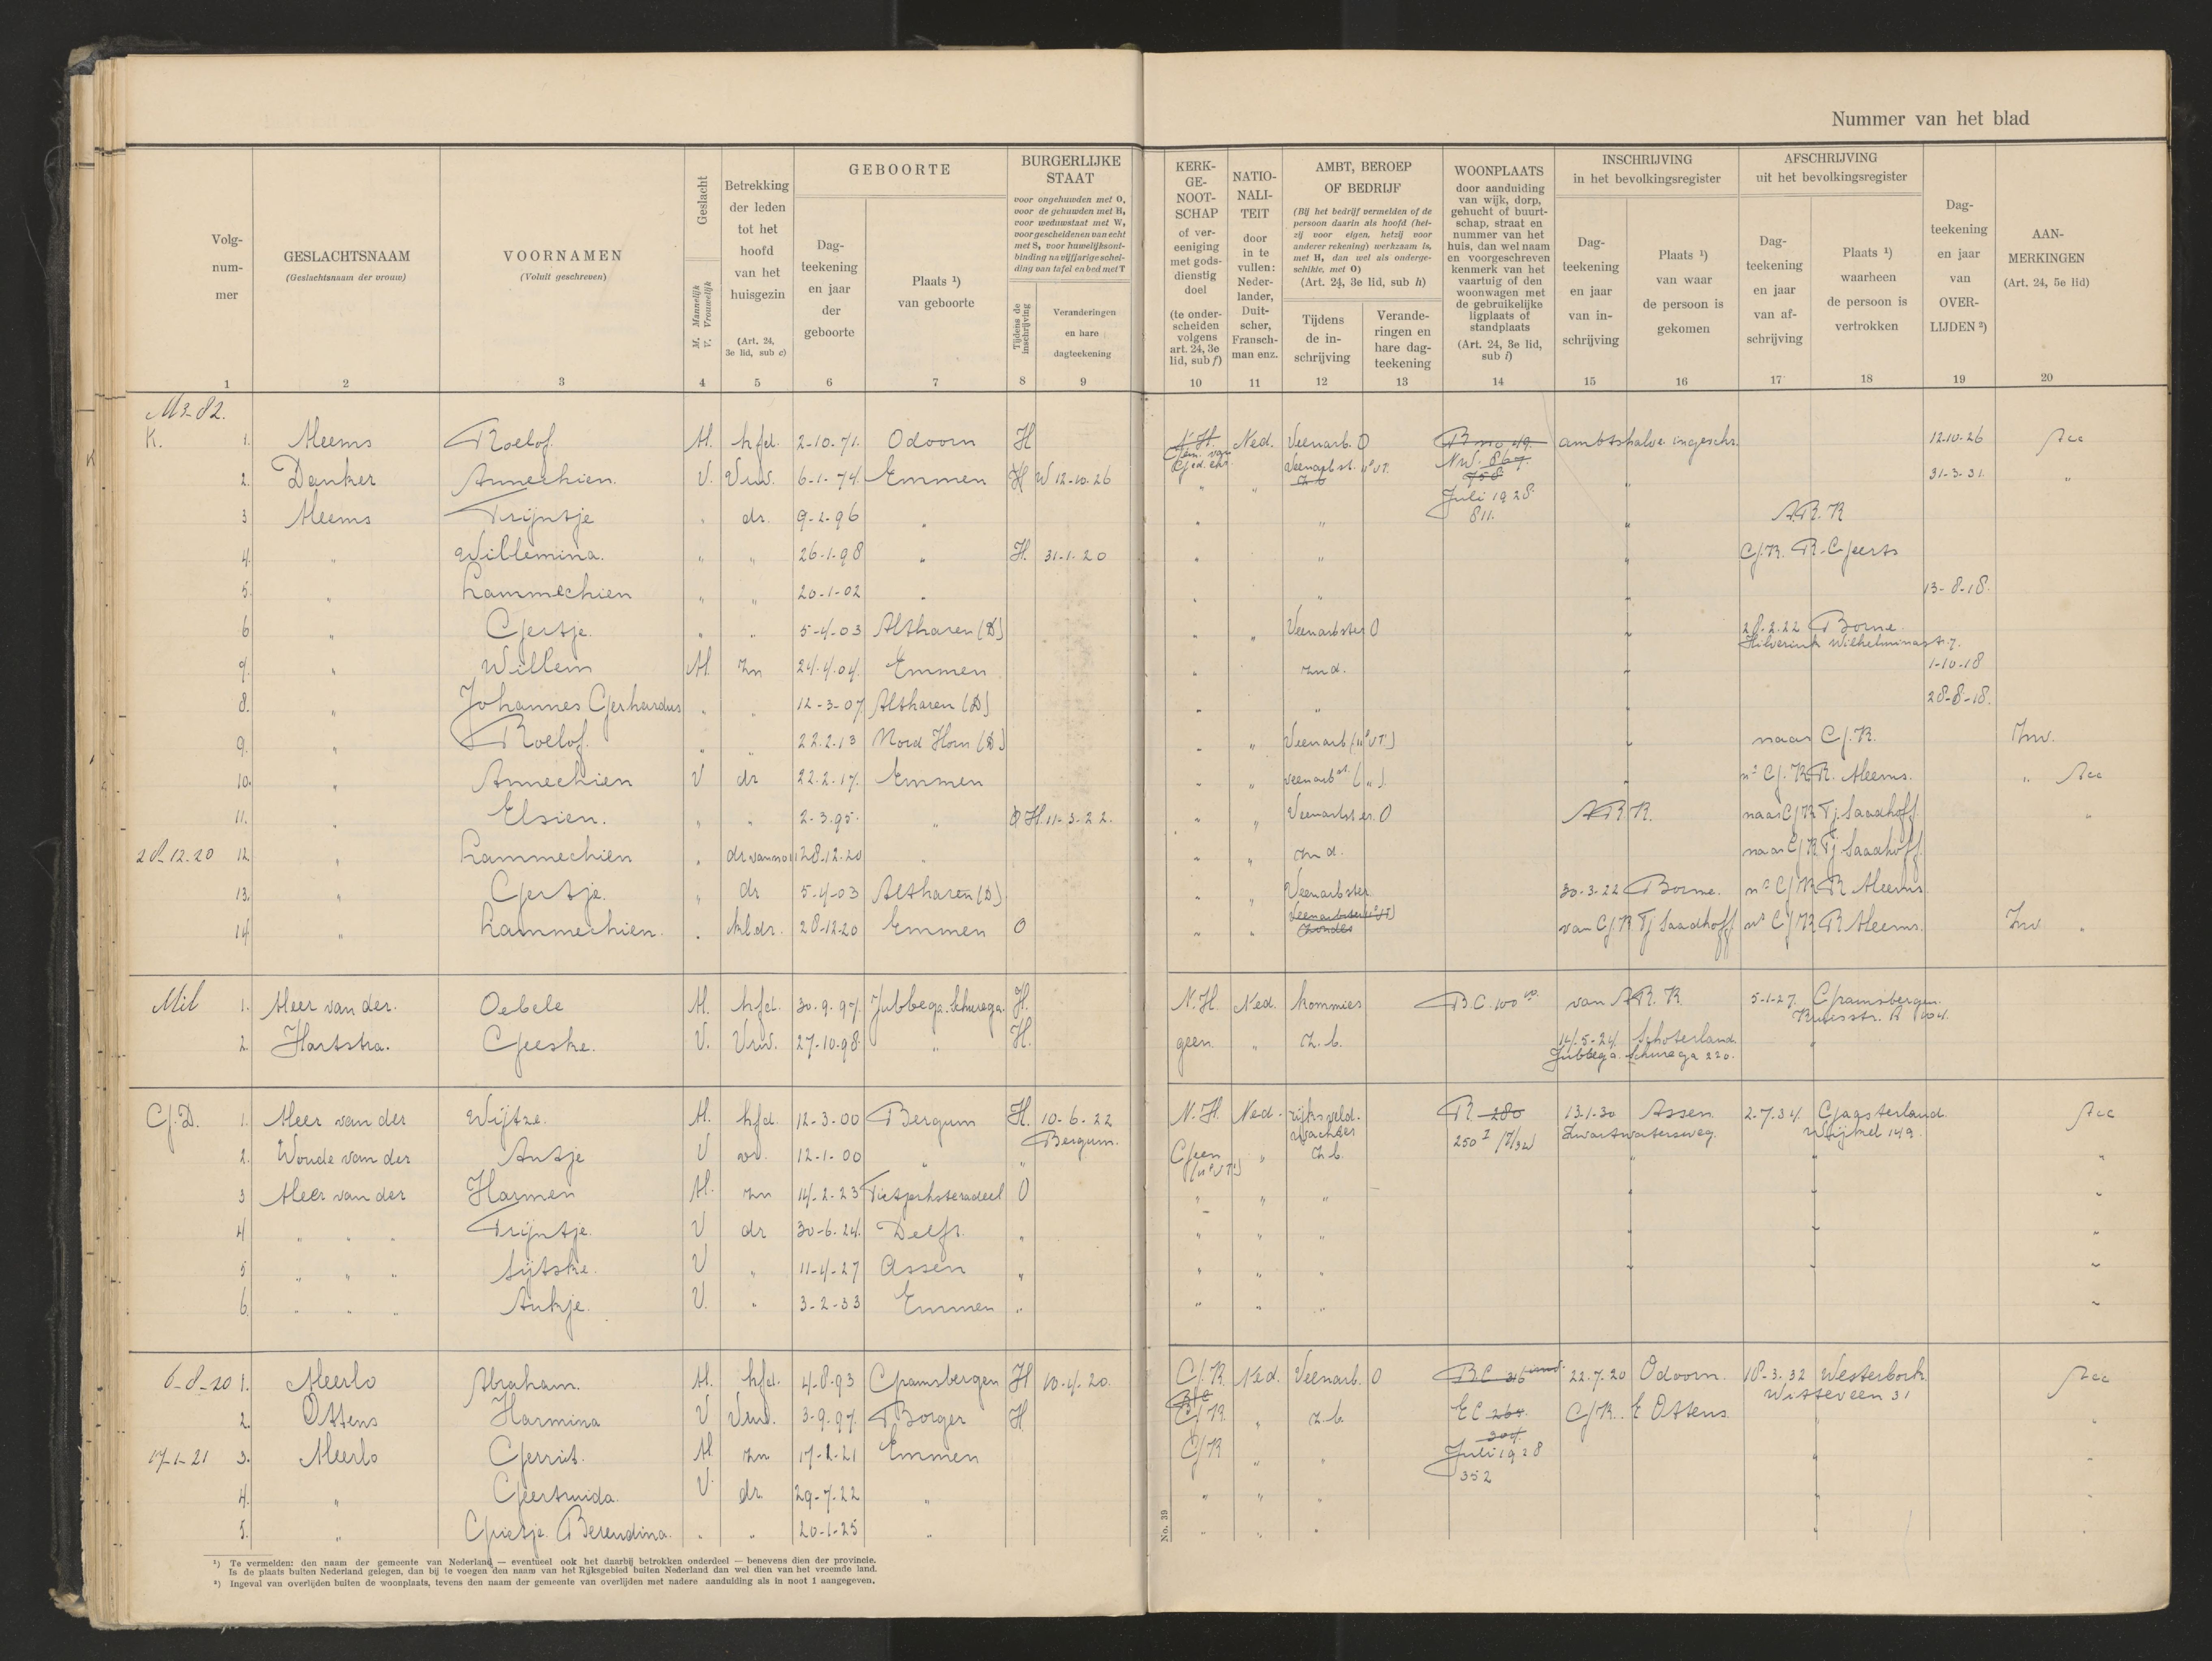 Nummer van het blad
Volg-
num-
mer
GESLACHTSNAAM
(Geslachtsnaam der vrouw)
VOORNAMEN
(Voluit geschreven)
Geslacht
M. Mannelijk
V. Vrouwelijk
Betrekking
der leden
tot het
hoofd
van het
huisgezin
(Art. 24,
3e lid, sub c)
GEBOORTE
Dag-
teekening
en jaar
der
geboorte
Plaats ¹)
van geboorte
BURGERLIJKE
STAAT
voor ongehuwden met O,
voor de gehuwden met H,
voor weduwstaat met W,
voor gescheidenen van echt
met S, voor huwelijksont-
binding na vijfjarige schei-
ding van tafel en bed met T
Tijdens de
inschrijving
Veranderingen
en hare
dagteekening
KERK-
GE-
NOOT-
SCHAP
of ver-
eeniging
met gods-
dienstig
doel
(te onder-
scheiden
volgens
art. 24, 3e
lid, sub f)
NATIO-
NALI-
TEIT
door
in te
vullen:
Neder-
lander,
Duit-
scher,
Fransch-
man enz.
AMBT, BEROEP
OF BEDRIJF
(Bij het bedrijf vermelden of de
persoon daarin als hoofd (het-
zij voor eigen, hetzij voor
anderer rekening) werkzaam is,
met H, dan wel als onderge-
schikte, met O)
(Art. 24, 3e lid, sub h)
Tijdens
de in-
schrijving
Verande-
ringen en
hare dag-
teekening
WOONPLAATS
door aanduiding
van wijk, dorp,
gehucht of buurt-
schap, straat en
nummer van het
huis, dan wel naam
en voorgeschreven
kenmerk van het
vaartuig of den
woonwagen met
de gebruikelijke
ligplaats of
standplaats
(Art. 24, 3e lid,
sub i)
INSCHRIJVING
in het bevolkingsregister
Dag-
teekening
en jaar
van in-
schrijving
Plaats ¹)
van waar
de persoon is
gekomen
AFSCHRIJVING
uit het bevolkingsregister
Dag-
teekening
en jaar
van af-
schrijving
Plaats ¹)
waarheen
de persoon is
vertrokken
Dag-
teekening
en jaar
van
OVER-
LIJDEN ²)
AAN-
MERKINGEN
(Art. 24, 5e lid)
1 2 3 4 5 6 7 8 9 10 11 12 13 14 15 16 17 18 19 20
M3-82.
K. 1. Meems Roelof. M. hfd. 2-10-71. Odoorn H N.H. Ned. Veenarb. O ambtshalve ingeschr. 12.10-26 Acc
2. Danker Annechien. V. Vrw. 6-1-74. Emmen H W 12-10-26 " " Veenarbst. N.W. 867. 758 " 31-3-31. "
Juli 1928.
3 Meems Trijntje " dr. 9-2-96 " " " 811. " A.R.K
4. " Willemina. " " 26-1-98 " H. 31-1-20 " " " G.K. R. Geerts
5. " Lammechien " " 20-1-02 " " " " 13-8-18.
6 " Gertje. " " 5-4-03 Altharen (D) " " Veenarbster O " 28.2.22 Borne.
Wilhelminastr. 7.
7. " Willem M. zn 24.4.04. Emmen " znd. " 1-10-18
8. " Johannes Gerhardus " " 12-3-07 Altharen (D) " " " 28-8-18.
9. " Roelof. " " 22.2.13 Nord Horn (D) " " Veenarb " naar G.K. Inv.
10. " Annechien V dr 22.2.17. Emmen " " veenarbst. " nr G.K. R. Meems. " Acc
11. " Elsien. " " 2-3.95. " O H. 11-3-22. " " Veenarbster. O A.R.K. naar G.K Tj. Saadhoff. "
28-12-20 12. " Lammechien " dr van no 11 28.12.20 " " " znd. naar G.K Tj Saadhoff.
13. " Gertje. " dr 5-4-03 Altharen (D) " " Veenarbster 30-3-22 Borne. nr G.K R Meems
14 " Lammechien. " kldr. 28-12-20 Emmen O " " zonder van G.K Tj Saadhoff nr G.K R Meems. Inv "
Mil 1. Meer van der. Oebele M. hfd. 30.9.97. Jubbega-Schurega. H. N.H. Ned. kommies B.C. 100 van A.R.K. 5-1-27. Gramsbergen.
2. Hartstra. Geeske. V. Vrw. 27-10-98. " H. geen. " z.b. 14-5-24. Schoterland. "
Jubbega Schurega 220.
G.D. 1. Meer van der Wijtze. M. hfd. 12-3-00 Bergum H. 10-6-22 N.H. Ned. rijksveld- R. 280 13.1.30 Assen 2-7.34. Gaasterland. Acc
Bergum. wachter 250 I Zwartwatersweg. Wijkel 149.
2. Woude van der Antje V vr. 12-1-00 " " Geen " z.b. " " "
3 Meer van der Harmen M. zn 14-2-23 Tietjerksteradeel O " " " " " "
4 " " " Trijntje. V dr 30-6-24. Delft. " " " " " " "
5 " " " Sijtske. V " 11-4-27 Assen " " " " " " "
6. " " " Aukje. V. " 3-2-33 Emmen " " " " "
6-8-20 1. Meerlo Abraham. M. hfd. 4-8-93 Gramsbergen H 10-4-20. G.K. Ned. Veenarb. O B.C 316 22.7.20 Odoorn. 18-3.32 Westerbork Acc
Witteveen 31
2. Ottens Harmina V Vrw. 3-9-97. Borger H G.K. " z.b. E C 268. G.K. E Ottens. " "
304.
17-1-21 3. Meerlo Gerrit. M. zn 17-1-21 Emmen G.K " " Juli 1928 " "
352
4. " Geertruida. V. dr. 29-7-22 " " " " " "
5. " Grietje Berendina. " " 20-1-25 " " " " " "
No. 39
¹) Te vermelden: den naam der gemeente van Nederland — eventueel ook het daarbij betrokken onderdeel — benevens dien der provincie.
Is de plaats buiten Nederland gelegen, dan bij te voegen den naam van het Rijksgebied buiten Nederland dan wel dien van het vreemde land.
²) Ingeval van overlijden buiten de woonplaats, tevens den naam der gemeente van overlijden met nadere aanduiding als in noot 1 aangegeven.